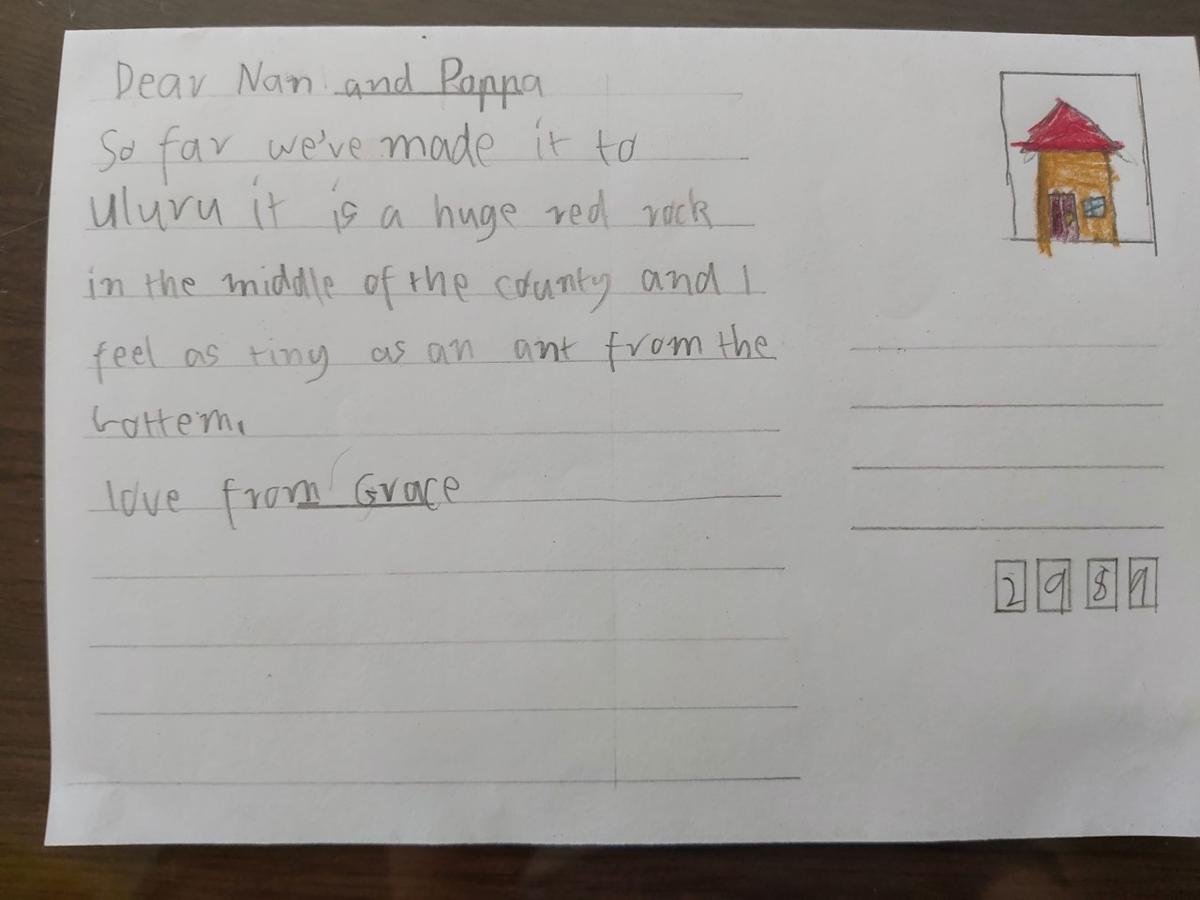 Dear Nan and Poppa
So far we've made it to
Uluru it is a huge red rock
in the middle of the county and I
feel as tiny as an ant from the
bottem.
love from Grace
2989